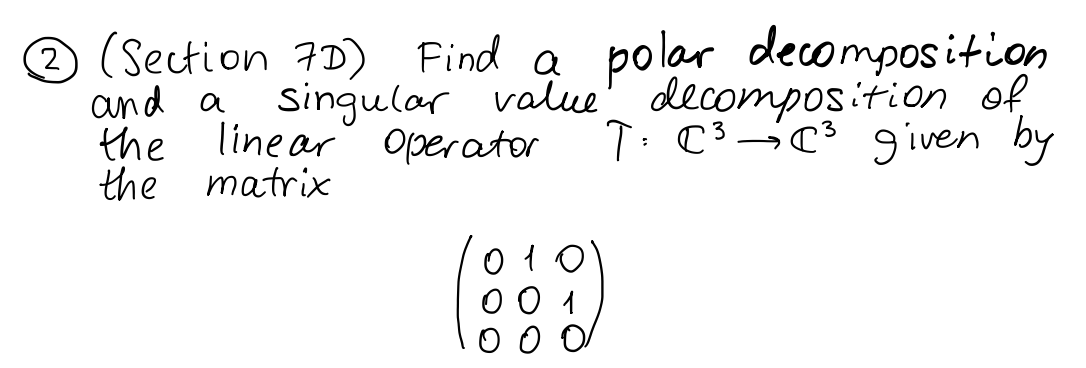 ② (Section 7D) Find a polar decomposition
and a singular value decomposition of
the linear operator T: ℂ³ → ℂ³ given by
the matrix
0 1 0
0 0 1
0 0 0